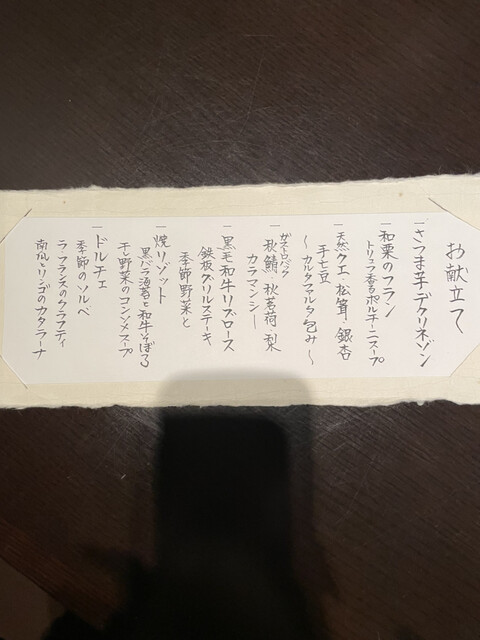 お献立て
一 さつま芋デクリネゾン
一 和栗のフラン
トリュフ香るポルチーニスープ
一 天然クエ・松茸・銀杏
子七豆
〜カルタファタ包み〜
一 ガストロバック
秋鯖・秋茗荷・梨
カラマンシー
一 黒毛和牛リブロース
鉄板グリルステーキ
季節野菜と
一 焼リゾット
黒バラ海苔と和牛そぼろ
干し野菜のコンソメスープ
一 ドルチェ
季節のソルベ
ラ・フランスのクラフティ
南瓜とリンゴのカタラーナ